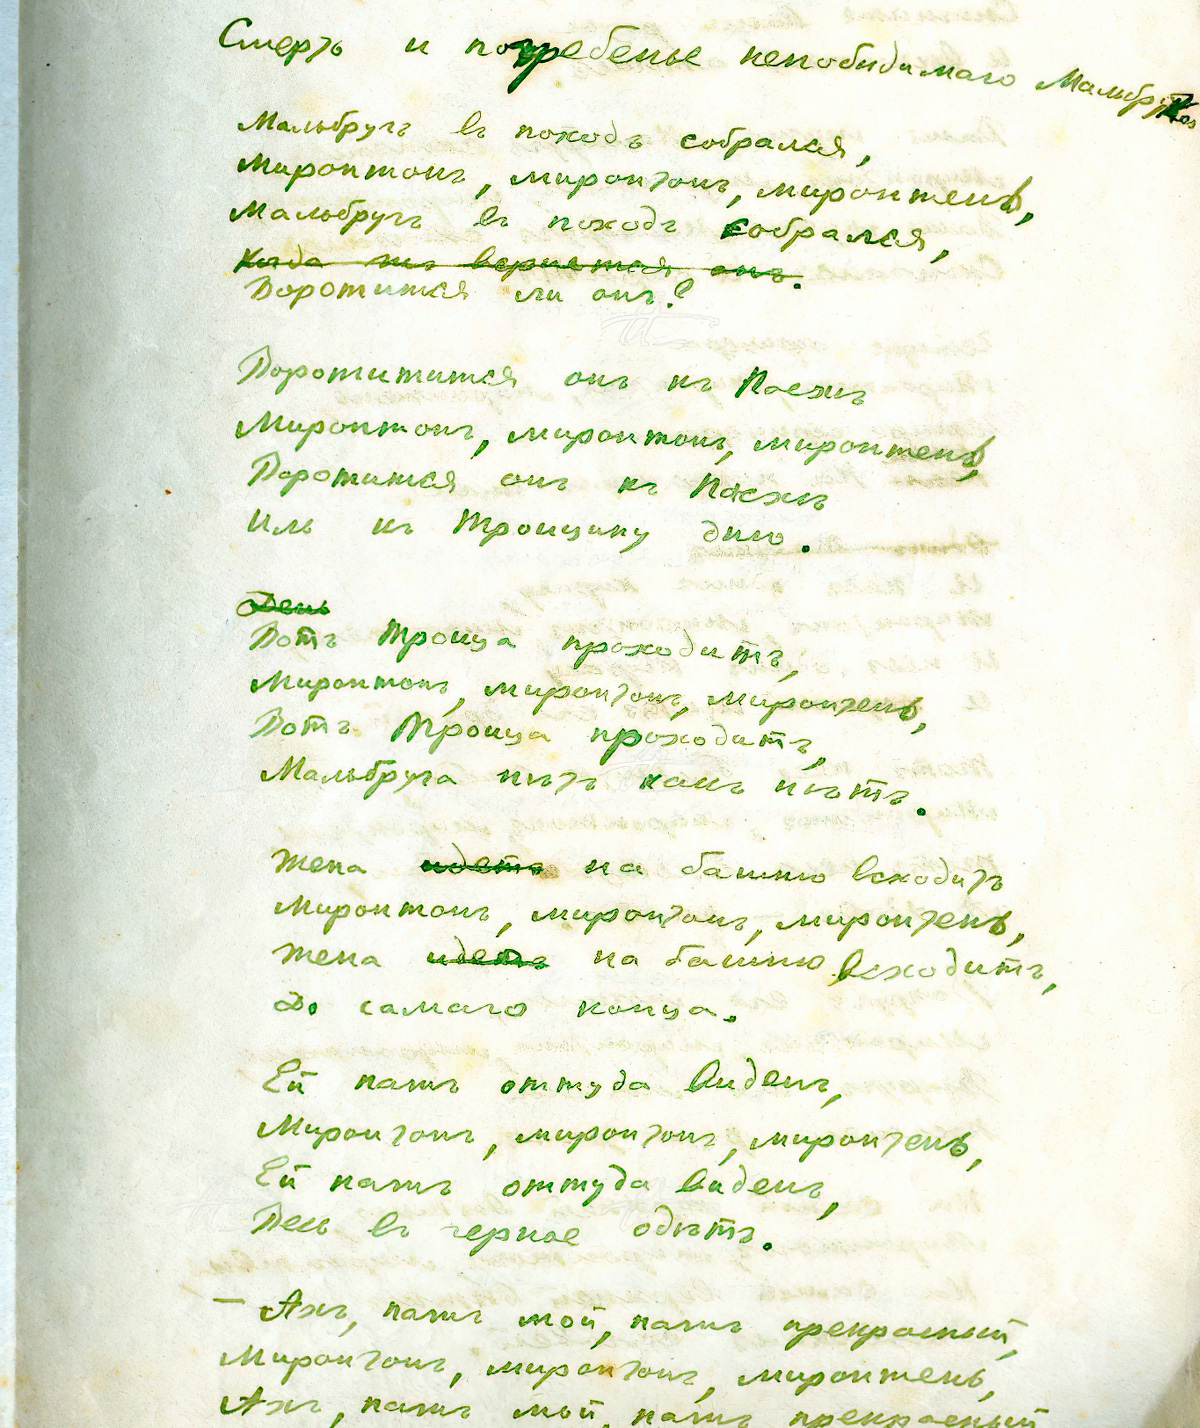 Смерть и погребенье непобидимаго Мальбруга
Мальбругъ въ походъ собрался,
Миронтонъ, миронтонъ, миронтень,
Мальбругъ въ походъ собрался,
Когда жъ вернется онъ.
Воротится ли онъ?
Воротитится онъ къ Пасхѣ
Миронтонъ, миронтонъ, миронтень,
Воротится онъ къ Пасхѣ
Иль къ Троицину дню.
День
Вотъ Троица проходитъ,
Миронтонъ, миронтонъ, миронтень,
Вотъ Троица проходитъ,
Мальбруга нѣтъ какъ нѣтъ.
Жена идетъ на башню всходитъ
Миронтонъ, миронтонъ, миронтень,
Жена идетъ на башню всходитъ,
До самаго конца.
Ей пажъ оттуда виденъ,
Миронтонъ, миронтонъ, миронтень,
Ей пажъ оттуда виденъ,
Весь въ черное одѣтъ.
— Ахъ, пажъ мой, пажъ прекрасный,
Миронтонъ, миронтонъ, миронтень,
Ахъ, пажъ мой, пажъ прекрасный